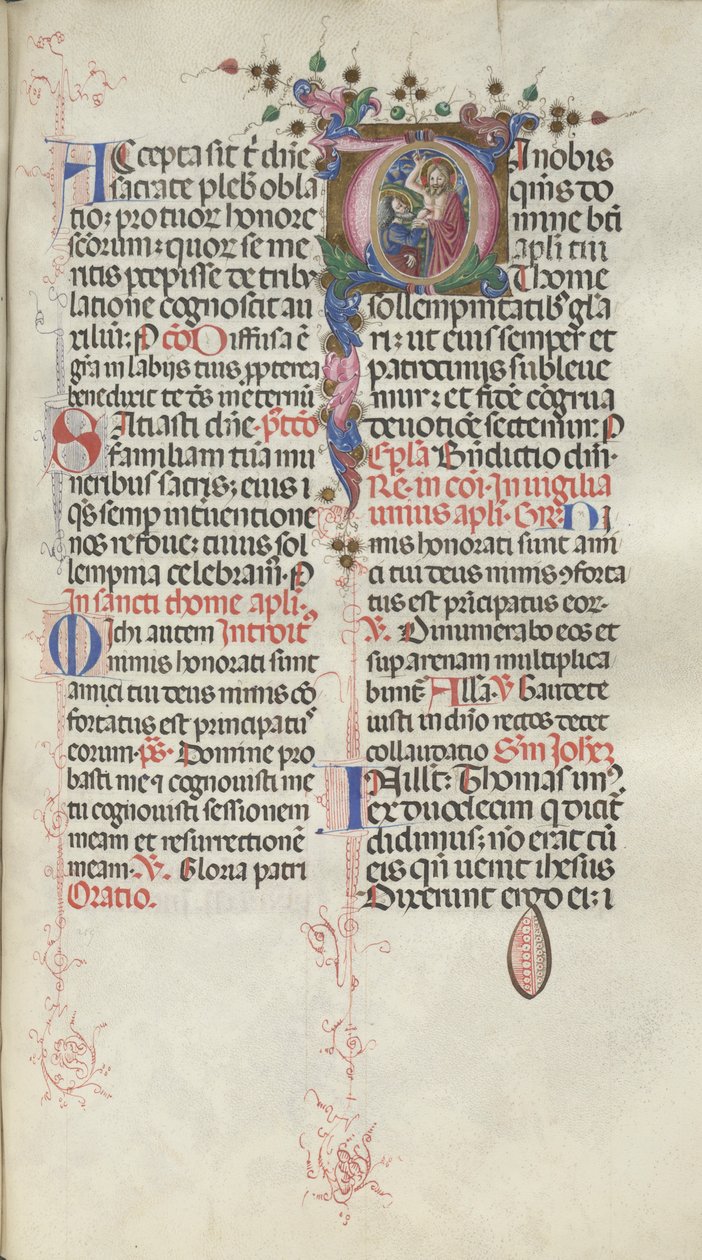 Accepta sit t̄ dn̄e
sacrate pleb̓ obla
tio: pro tuor̄ honore
sc̄orum: quor̄ se me
ritis p̄cepisse de tribu
latione cognoscit au
xiliū: P cō Diffusa ē
gr̄a in labijs tuis, ppterea
benedixit te d̄s in eternū
Satiasti dn̄e p̄t cō
familiam tuā mu
neribus sacris: eius
q̄s semp̄ int̄uentione
nos refoue: cuius sol
lempnia celebram̄. P
In sancti thome apl̄i.
Michi autem Introit᷒
nimis honorati sunt
amici tui deus nimis cō
fortatus est principatu᷒
eorum. ps̄. Domine pro
basti me ⁊ cognouisti me
tu cognouisti sessionem
meam et resurrectionē
meam. V̄. Gloria patri
Oratio.
Da nobis
qm̄s do
mine bt̄i
apl̄i tui
Thome
sollempnitatib᷒ gl̄a
ri: ut eius semper et
patrocinijs subleue
mur: et fidē cōgrua
deuotiōe sectemur: P
Ep̄la Bn̄dictio dn̄i.
Re. in cōi. In uigilia
unius apl̄i. Gr̄. Ni
mis honorati sunt ami
ci tui deus nimis ꝯforta
tus est prīcipatus eor̄.
V̄. Dinumerabo eos et
sup arenam multiplica
bunt̄ Alla. V̄ Gaudete
iusti in dn̄o rectos decet
collaudatio Sm̄ Johez̄
In ill̄t: Thomas un᷒
ex duodecim q dicit̄
didimus: nō erat cū
eis qn̄ uenit ihesus
Dixerunt ergo ei: i